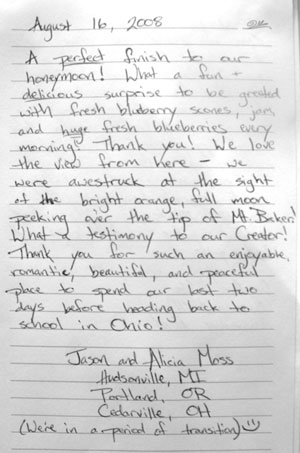 August 16, 2008
A perfect finish to our
honeymoon! What a fun +
delicious surprise to be greeted
with fresh blueberry scones, jam,
and huge fresh blueberries every
morning! Thank you! We love
the view from here - we
were awestruck at the sight
of the bright orange, full moon
peeking over the tip of Mt. Baker!
What a testimony to our Creator!
Thank you for such an enjoyable,
romantic, beautiful, and peaceful
place to spend our last two
days before heading back to
school in Ohio!
Jason and Alicia Moss
Hudsonville, MI
Portland, OR
Cedarville, OH
(We're in a period of transition)